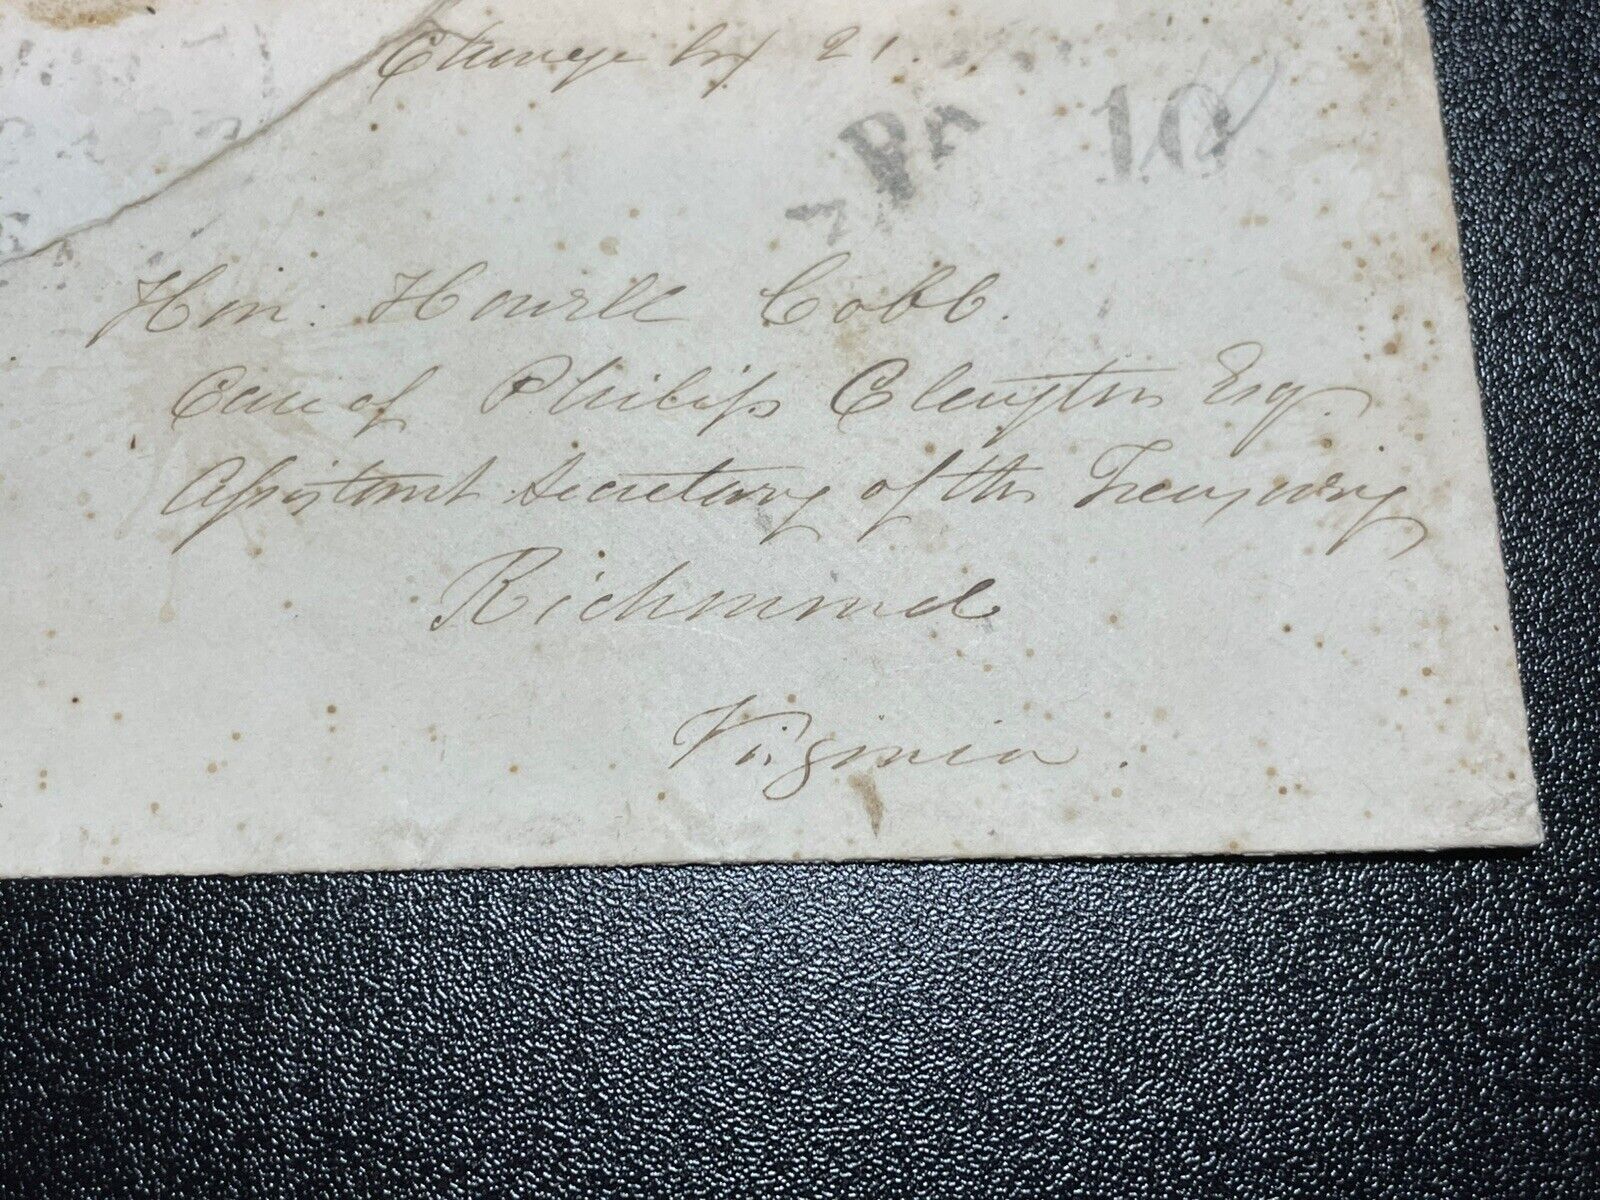 Charge box 21.
10
Hon. Howell Cobb.
Care of Philip Clayton Esq.
Assistant Secretary of the Treasury
Richmond
Virginia.